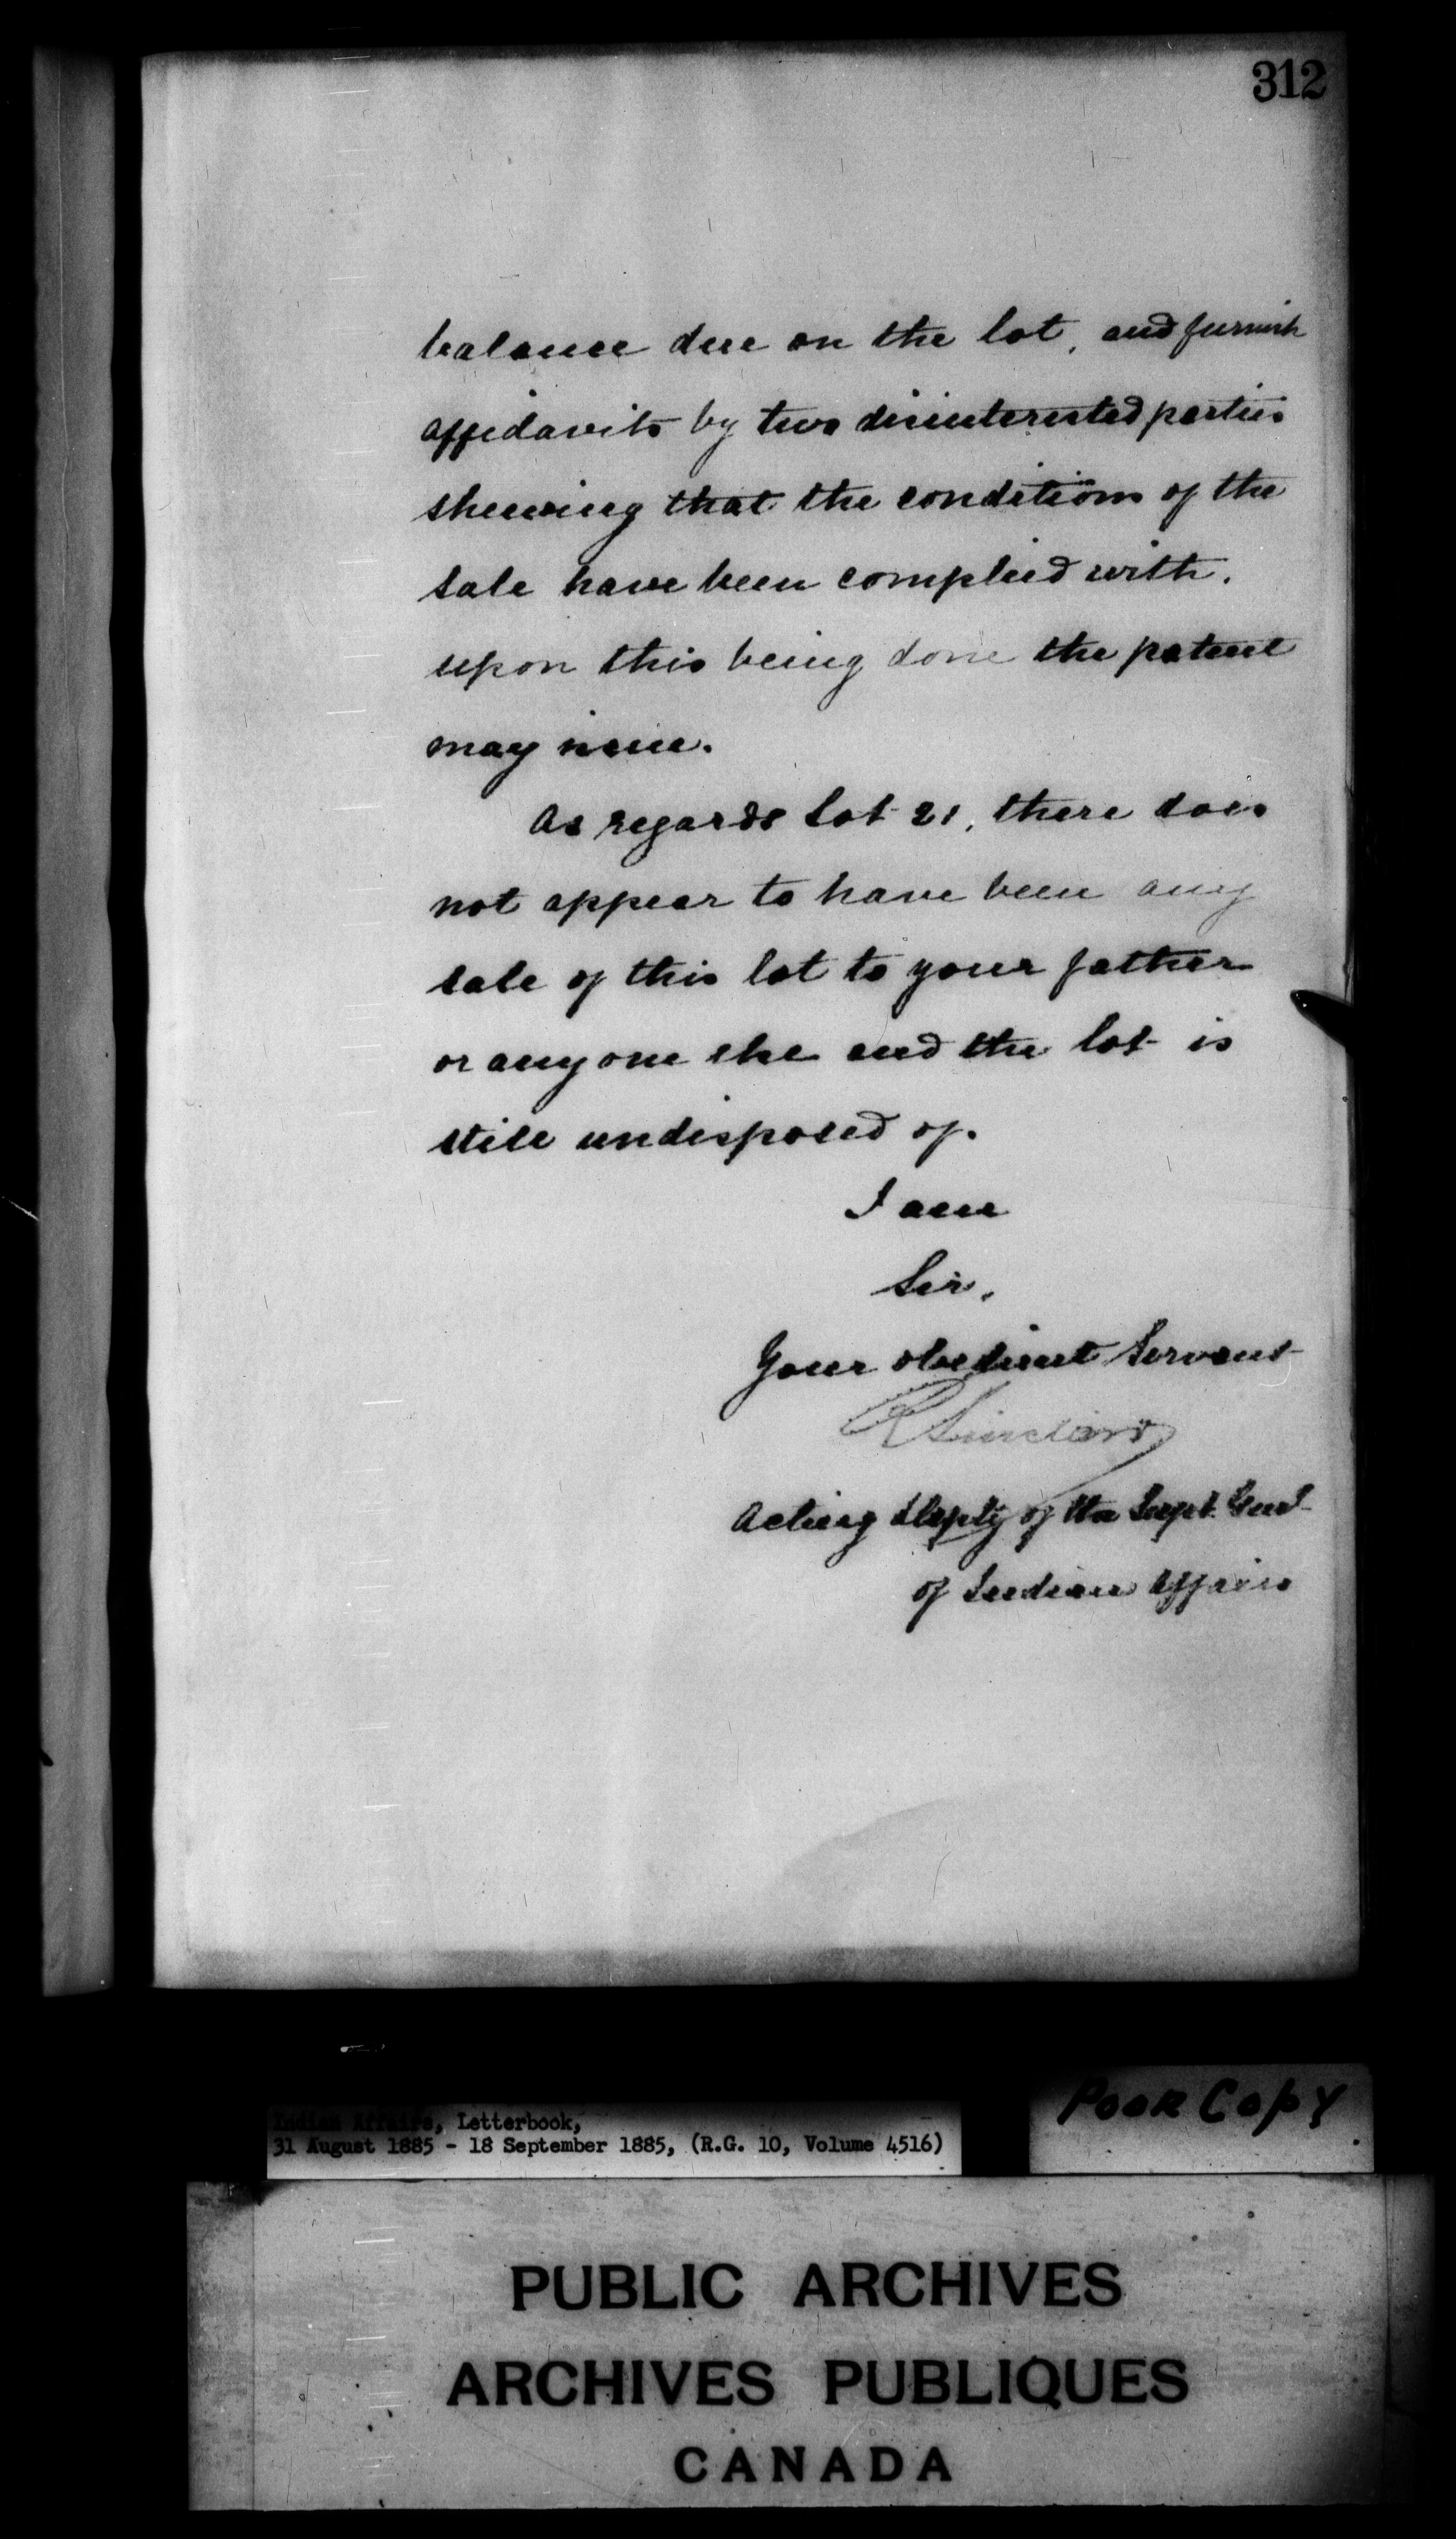 312
balance due on the lot, and furnish
affidavits by two disinterested parties
shewing that the conditions of the
sale have been complied with.
upon this being done the patent
may issue.
As regards Lot 21, there does
not appear to have been any
sale of this lot to your father
or anyone else and the lot is
still undisposed of.
I am
Sir,
Your obedient Servant
R Sinclair
Acting Depty of the Supt. Genl
of Indian Affairs
Indian Affairs, Letterbook,
31 August 1885 - 18 September 1885, (R.G. 10, Volume 4516)
POOR COPY
PUBLIC ARCHIVES
ARCHIVES PUBLIQUES
CANADA